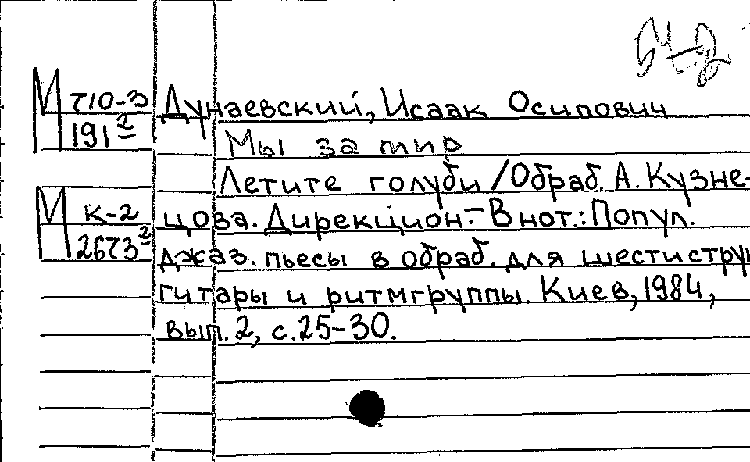 54-2
М Т10-3 Дунаевский, Исаак Осипович
191²
Мы за мир
Летите голуби / Обраб. А. Кузне-
М К-2 цова. Дирекцион.– В нот.: Попул.
2673² джаз. пьесы в обраб. для шестистру
гитары и ритмгруппы. Киев, 1984,
вып. 2, с. 25–30.